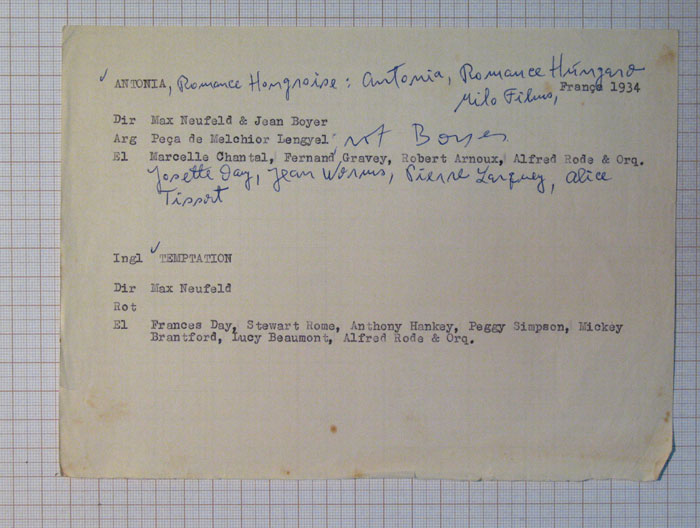 ✓ ANTONIA, Romance Hongroise: Antonia, Romance Húngaro
Milo Films, França 1934
Dir Max Neufeld & Jean Boyer
Arg Peça de Melchior Lengyel rot Boyer
El Marcelle Chantal, Fernand Gravey, Robert Arnoux, Alfred Rode & Orq.
Josette Day, Jean Worms, Pierre Larquey, Alice
Tissot
Ingl ✓ TEMPTATION
Dir Max Neufeld
Rot
El Frances Day, Stewart Rome, Anthony Hankey, Peggy Simpson, Mickey
Brantford, Lucy Beaumont, Alfred Rode & Orq.